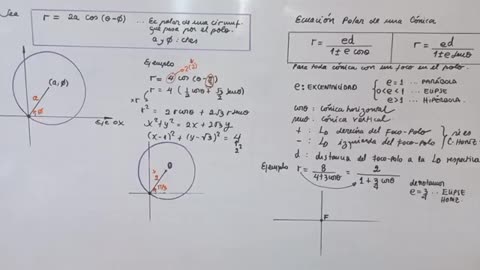 Sea
r = 2a cos (θ-ϕ)
... Ec polar de una circunf.
que pasa por el polo.
a y ϕ : ctes
(a; ϕ)
a
ϕ
Eje OX
Ejemplo
2(2)
r = 4 cos (θ - π/3)
r = 4 ( 1/2 cosθ + √3/2 senθ )
xr
r² = 2r cosθ + 2√3 r senθ
x² + y² = 2x + 2√3 y
(x-1)² + (y-√3)² = 4
2²
2
π/3
Ecuación Polar de una Cónica
r = ed / 1 ± e cosθ
r = ed / 1 ± e senθ
Para toda cónica con un foco en el polo.
e : EXCENTRICIDAD
e = 1 ... PARÁBOLA
0<e<1 ... ELIPSE
e>1 ... HIPÉRBOLA
cosθ : cónica horizontal
senθ : cónica vertical
+ : LD derecha del Foco-Polo
- : LD izquierda del foco-polo
si es C. HORIZ
d : distancia del foco-polo a la LD respectiva
Ejemplo
r = 8 / 4+3cosθ = 2 / 1 + 3/4 cosθ
denotamos
e = 3/4 ... ELIPSE
HORIZ
F